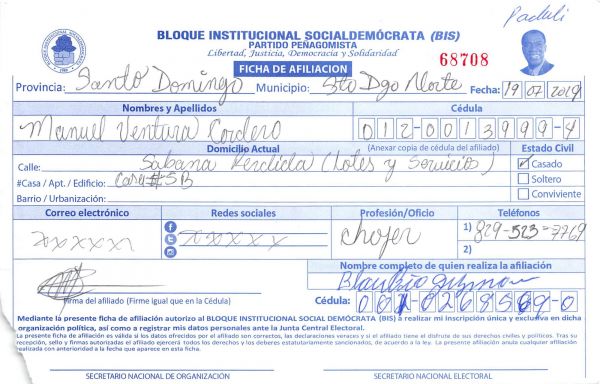 Padali
BLOQUE INSTITUCIONAL SOCIALDEMÓCRATA (BIS)
PARTIDO PEÑAGOMISTA
Libertad, Justicia, Democracia y Solidaridad
68708
FICHA DE AFILIACION
Provincia: Santo Domingo Municipio: Sto Dgo Norte Fecha: 19 07 2019
Nombres y Apellidos Cédula
Manuel Ventura Cordero 012-0013999-4
Domicilio Actual (Anexar copia de cédula del afiliado) Estado Civil
Calle: Sabana Perdida (Lotes y Servicios) ✓ Casado
#Casa / Apt. / Edificio: Casa #5B Soltero
Barrio / Urbanización: Conviviente
Correo electrónico Redes sociales Profesión/Oficio Teléfonos
xxxxxxx xxxxx chofer 1) 829-523-7769
2)
Nombre completo de quien realiza la afiliación
Firma del afiliado (Firme igual que en la Cédula) Cédula: 001-0268569-0
Mediante la presente ficha de afiliación autorizo al BLOQUE INSTITUCIONAL SOCIAL DEMÓCRATA (BIS) a realizar mi inscripción única y exclusiva en dicha
organización política, así como a registrar mis datos personales ante la Junta Central Electoral.
La presente ficha de afiliación es válida si los datos ofrecidos por el afiliado son correctos, las declaraciones veraces y si el afiliado tiene el disfrute de sus derechos civiles y políticos. Tras su
recepción, sello y firmas autorizadas el afiliado ejercerá todos los derechos y los deberes estatutariamente sancionados, de acuerdo a la ley. La presente afiliación anula cualquier afiliación
realizada con anterioridad a la fecha que aparece en esta ficha.
SECRETARIO NACIONAL DE ORGANIZACIÓN SECRETARIO NACIONAL ELECTORAL